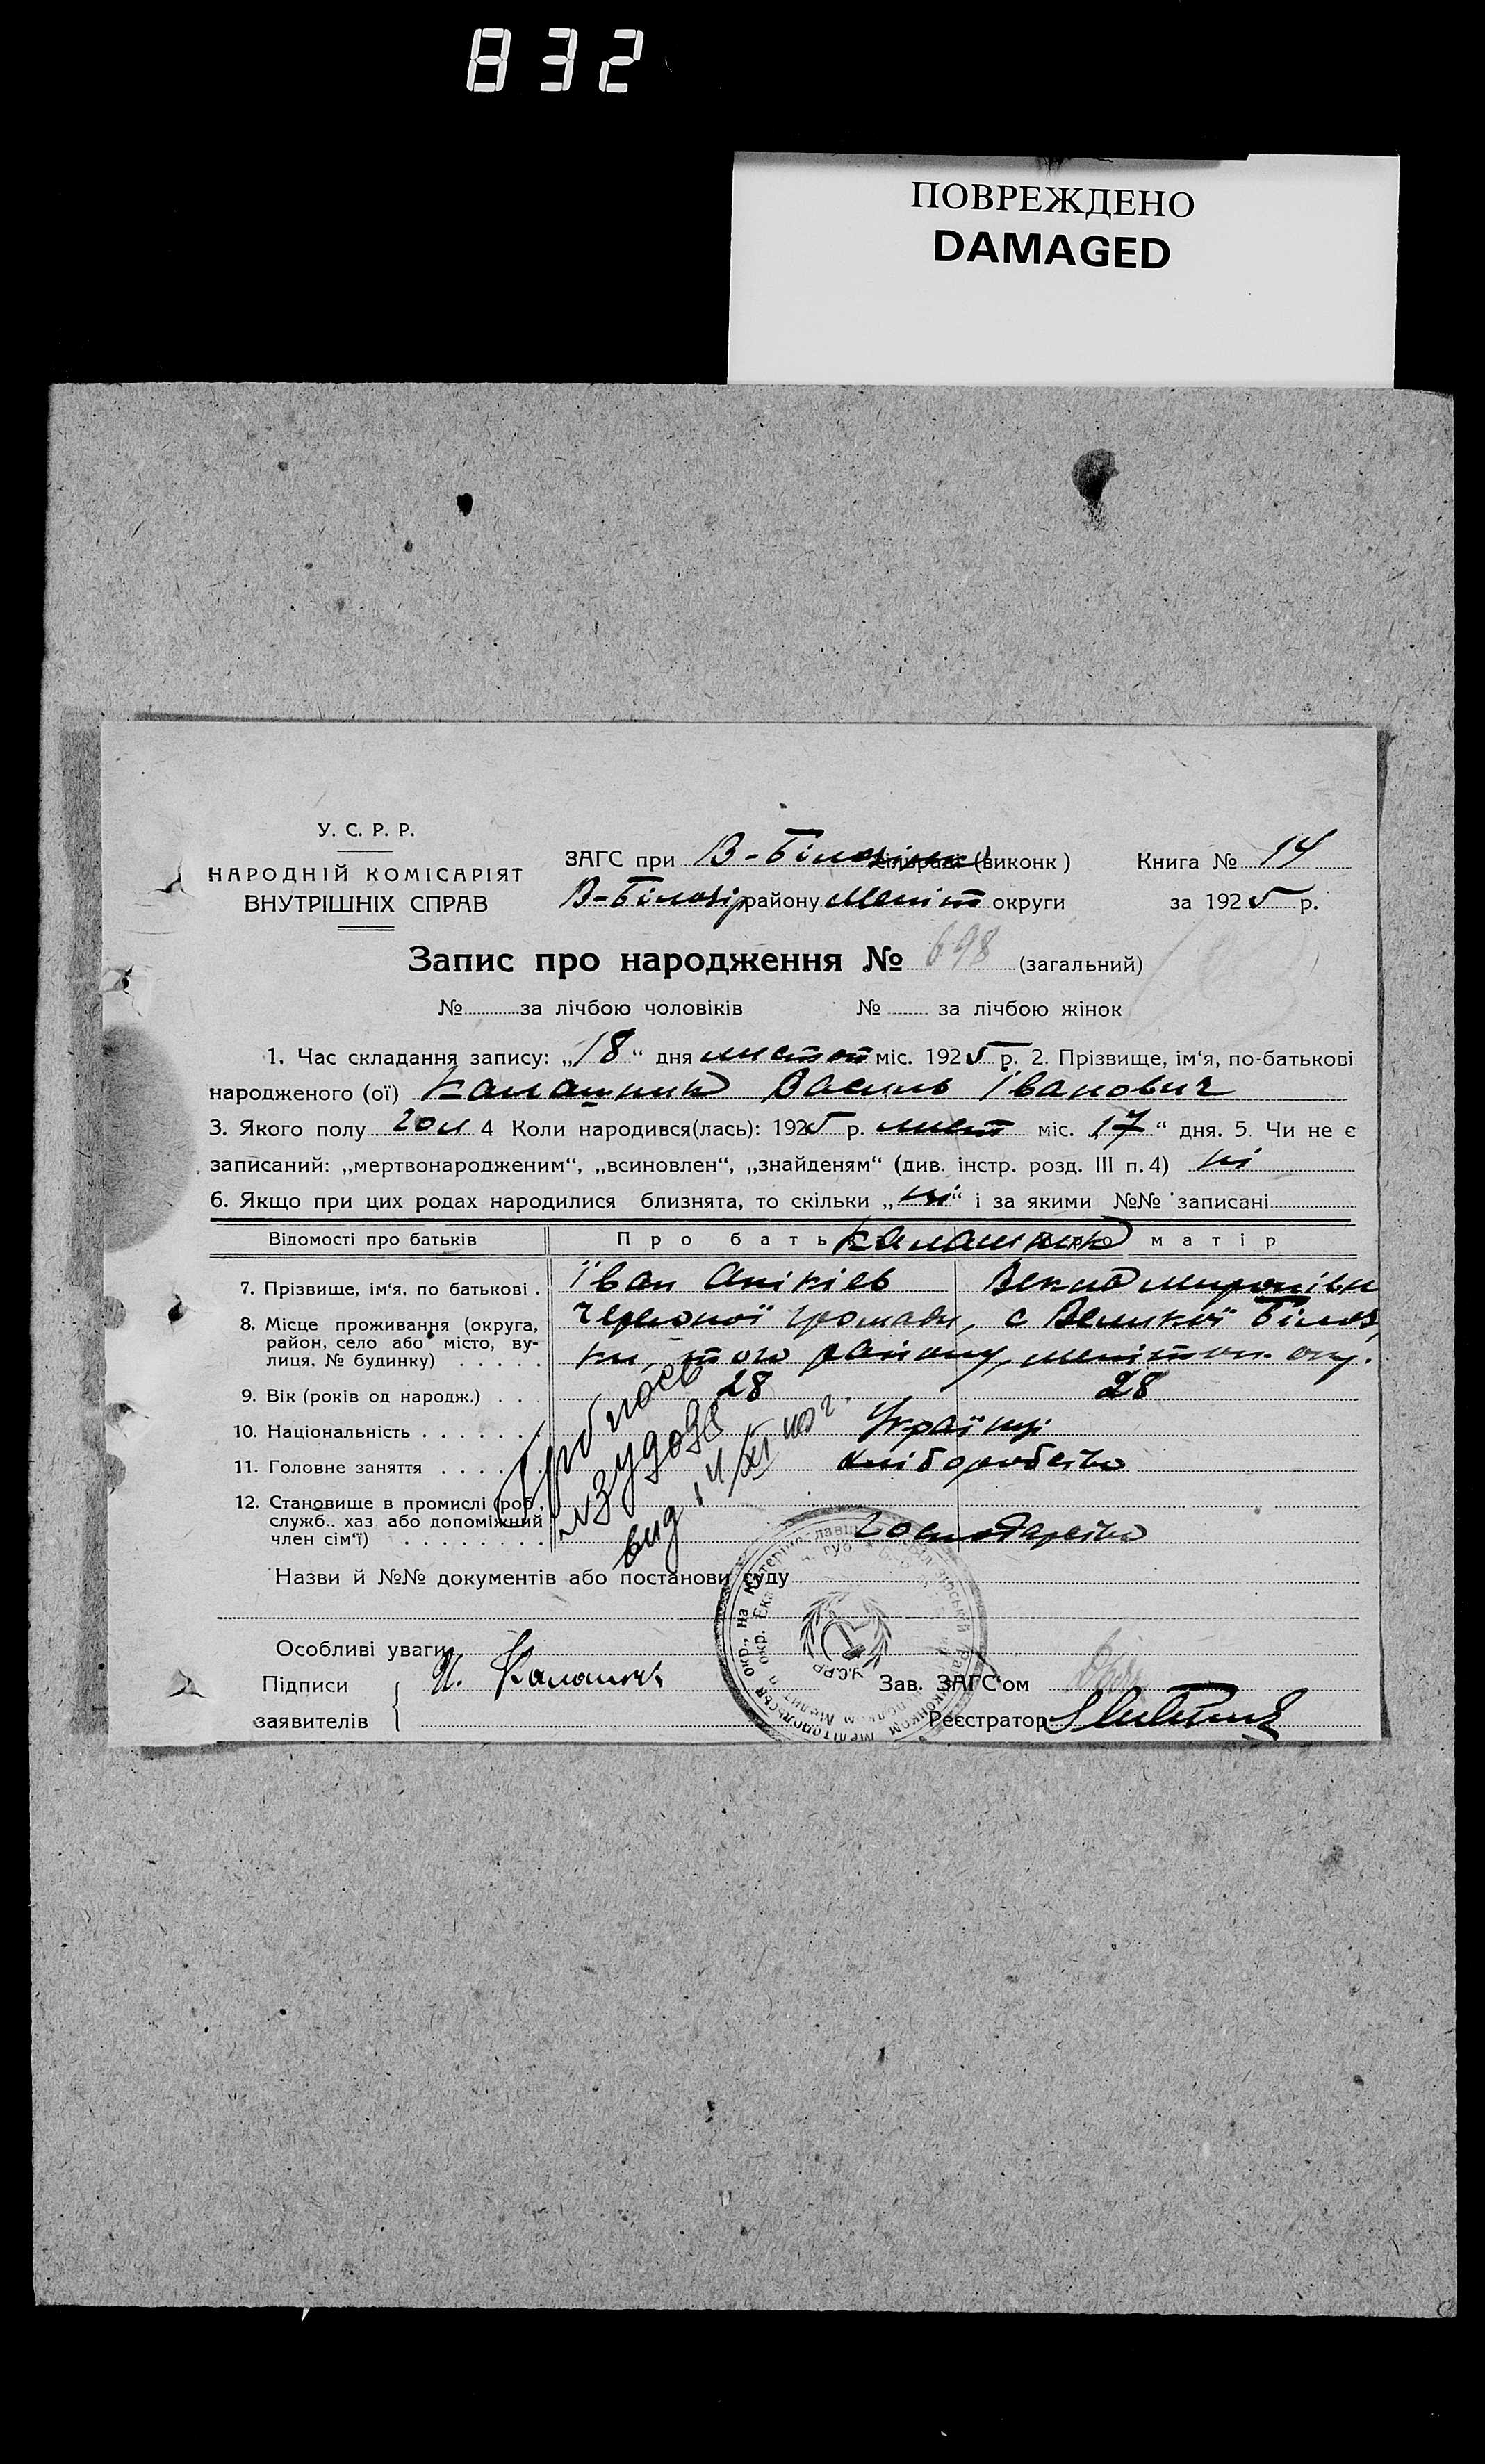 832
ПОВРЕЖДЕНО
DAMAGED
У. С. Р. Р.
НАРОДНІЙ КОМІСАРІЯТ
ВНУТРІШНІХ СПРАВ
ЗАГС при В-Білозірськ (виконк)
Книга № 14
В-Білозір району Меліт округи
за 1925 р.
Запис про народження № 698 (загальний)
№ за лічбою чоловіків № за лічбою жінок
1. Час складання запису: „18“ дня листоп міс. 1925 р. 2. Прізвище, ім‘я, по-батькові
народженого (ої) Калашник Василь Іванович
3. Якого полу чол 4 Коли народився(лась): 1925 р. лист міс. „17“ дня. 5. Чи не є
записаний: „мертвонародженим“, „всиновлен“, „знайденям“ (див. інстр. розд. III п. 4) ні
6. Якщо при цих родах народилися близнята, то скільки „ні“ і за якими №№ записані
Відомості про батьків Про батьк Калашник матір
7. Прізвище, ім‘я, по батькові . Іван Анікіев Миронівн
8. Місце проживання (округа, Червоної громади, с Великої Білоз
район, село або місто, ву-
лиця, № будинку) . . . . . ки, того району, мелітоп. окр.
9. Вік (років од народж.) . . 28 28
10. Національність . . . . . . Українці
11. Головне заняття . . . . хліборобство
12. Становище в промислі (роб.,
служб., хаз. або допоміжний
член сім‘ї) . . . . . . . . господарство
вид 14/XI
Назви й №№ документів або постанови суду
Особливі уваги
Підписи И. Калашник Зав. ЗАГС‘ом
заявителів Реєстратор